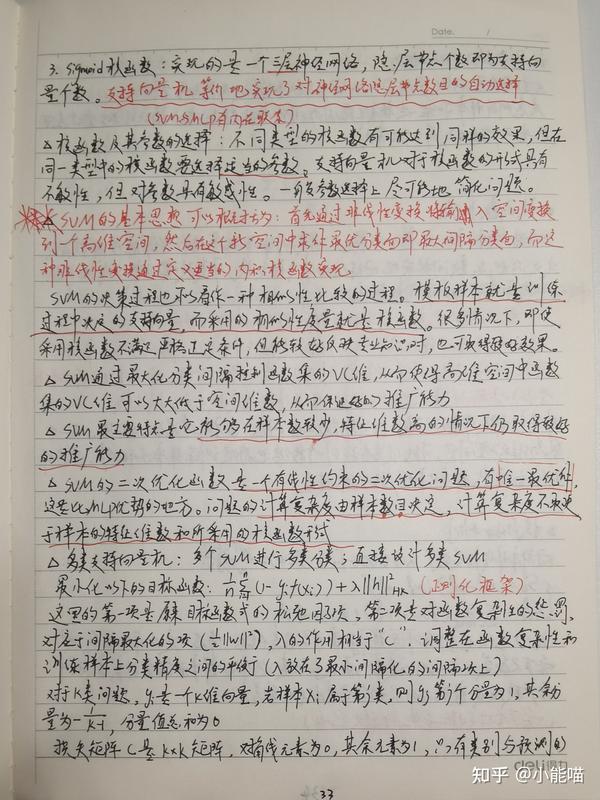 Date.      /
3. Sigmoid 核函数：实现的是一个三层神经网络，隐层节点个数即为支持向
量个数。支持向量机等价地实现了对神经网络隐层节点数目的自动选择
(SVM与MLP有内在联系)
△ 核函数及其参数的选择：不同类型的核函数有可能达到同样的效果，但在
同一类型中的核函数要选择适当的参数。支持向量机对于核函数的形式具有
不敏性，但对参数具有敏感性。一般参数选择上尽可能地简化问题。
△ SVM的基本思想可以概括为：首先通过非线性变换将输入空间变换
到一个高维空间，然后在这个新空间中求件最优分类面即最大间隔分类面，而这
种非线性变换通过定义适当的内积核函数实现
SVM的决策过程也可以看作一种相似性比较的过程。模板样本就是训练
过程中决定的支持向量，而采用的相似性度量就是核函数。很多情况下，即使
采用核函数不满足严格正定条件，但能较好反映专业知识时，也可取得较好效果。
△ SVM通过最大化分类间隔控制函数集的VC维，从而使得高维空间中函数
集的VC维可以大大低于空间维数，从而保证好的推广能力
△ SVM最主要特点是它能够在样本数较少，特征维数高的情况下仍取得较好
的推广能力
△ SVM的二次优化函数是一个有线性约束的二次优化问题，有唯一最优解，
这是比MLP优势的地方。问题的计算复杂度由样本数目决定，计算复杂度不取决
于样本的特征维数和所采用的核函数形式
△ 多类支持向量机：多个SVM进行多类分类；直接设计多类SVM
最小化以下的目标函数：1/n Σ(1-yif(xi))+λ||h||²HK (正则化框架)
这里的第一项是原目标函数式的松弛因子项，第二项是对函数复杂性的惩罚，
对应于间隔最大化的项(½||w||²)，λ的作用相当于“C”，调整在函数复杂性和
训练样本上分类精度之间的平衡(λ放在了最小间隔化的间隔项上)
对于K类问题，yi是一个K维向量，若样本Xi属于第j类，则yi第j个分量为1，其余分
量为-1/(k-1)，分量值总和为0
损失矩阵C是k×k矩阵，对角线元素为0，其余元素为1，只有类别与预测的
deli得力
33
知乎 @小能喵